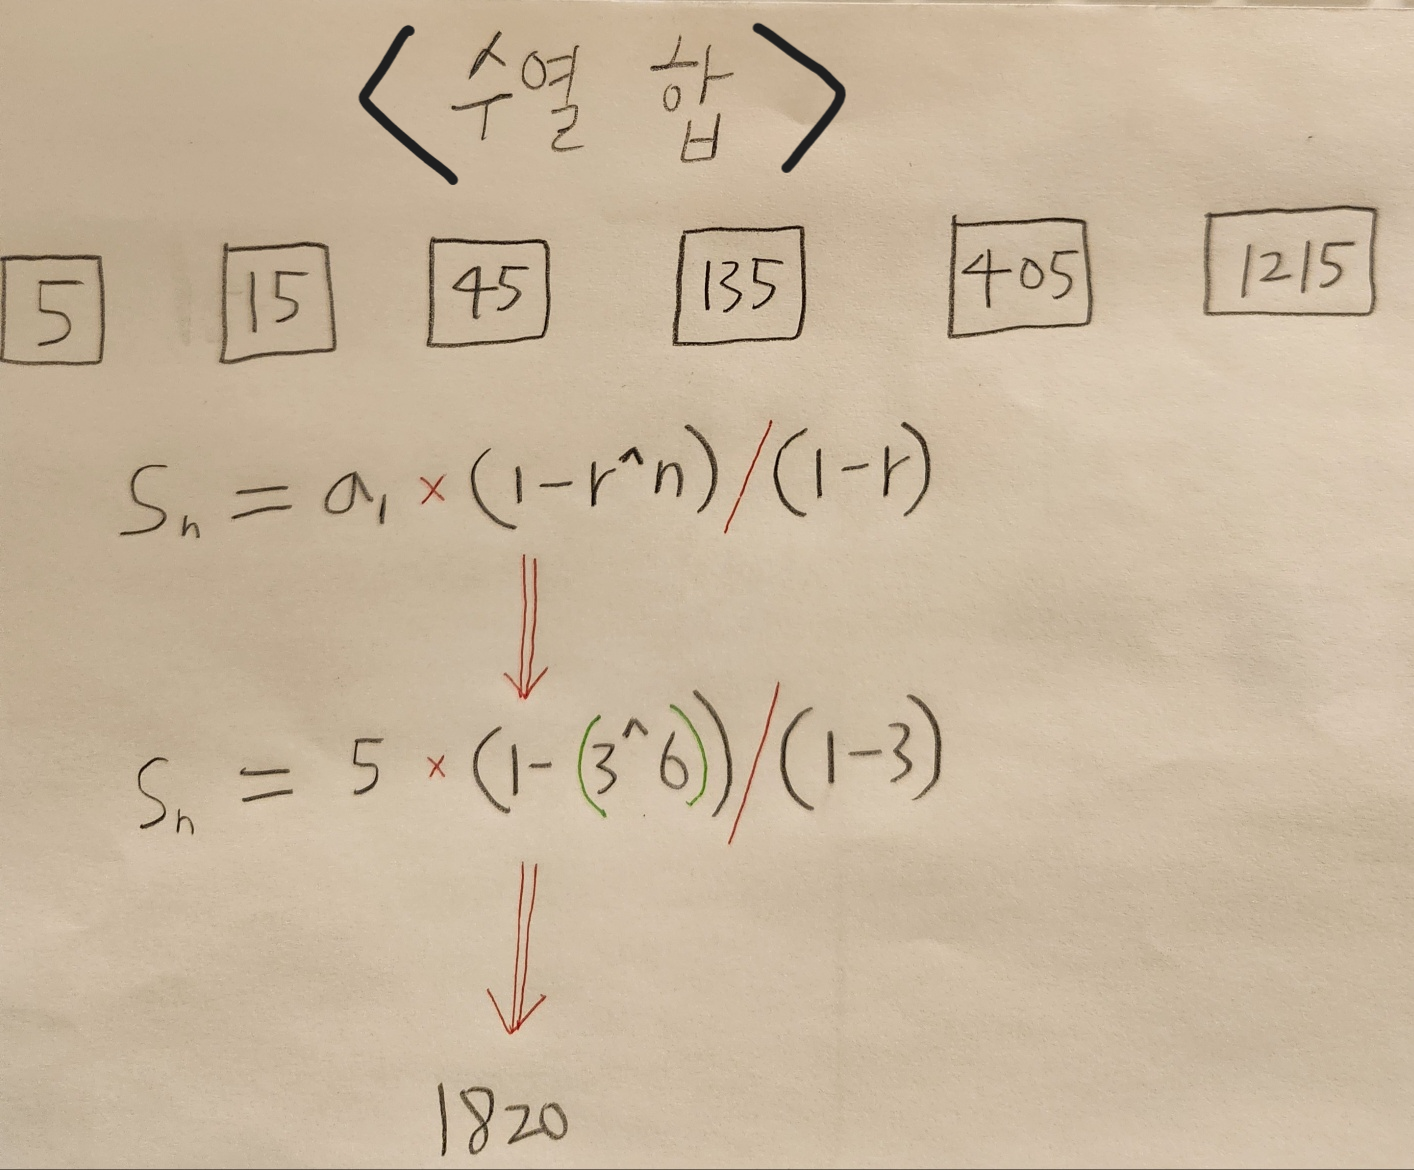 <수열 합>
5 15 45 135 405 1215
Sn = a1 × (1-r^n)/(1-r)
Sn = 5 × (1-(3^6))/(1-3)
1820